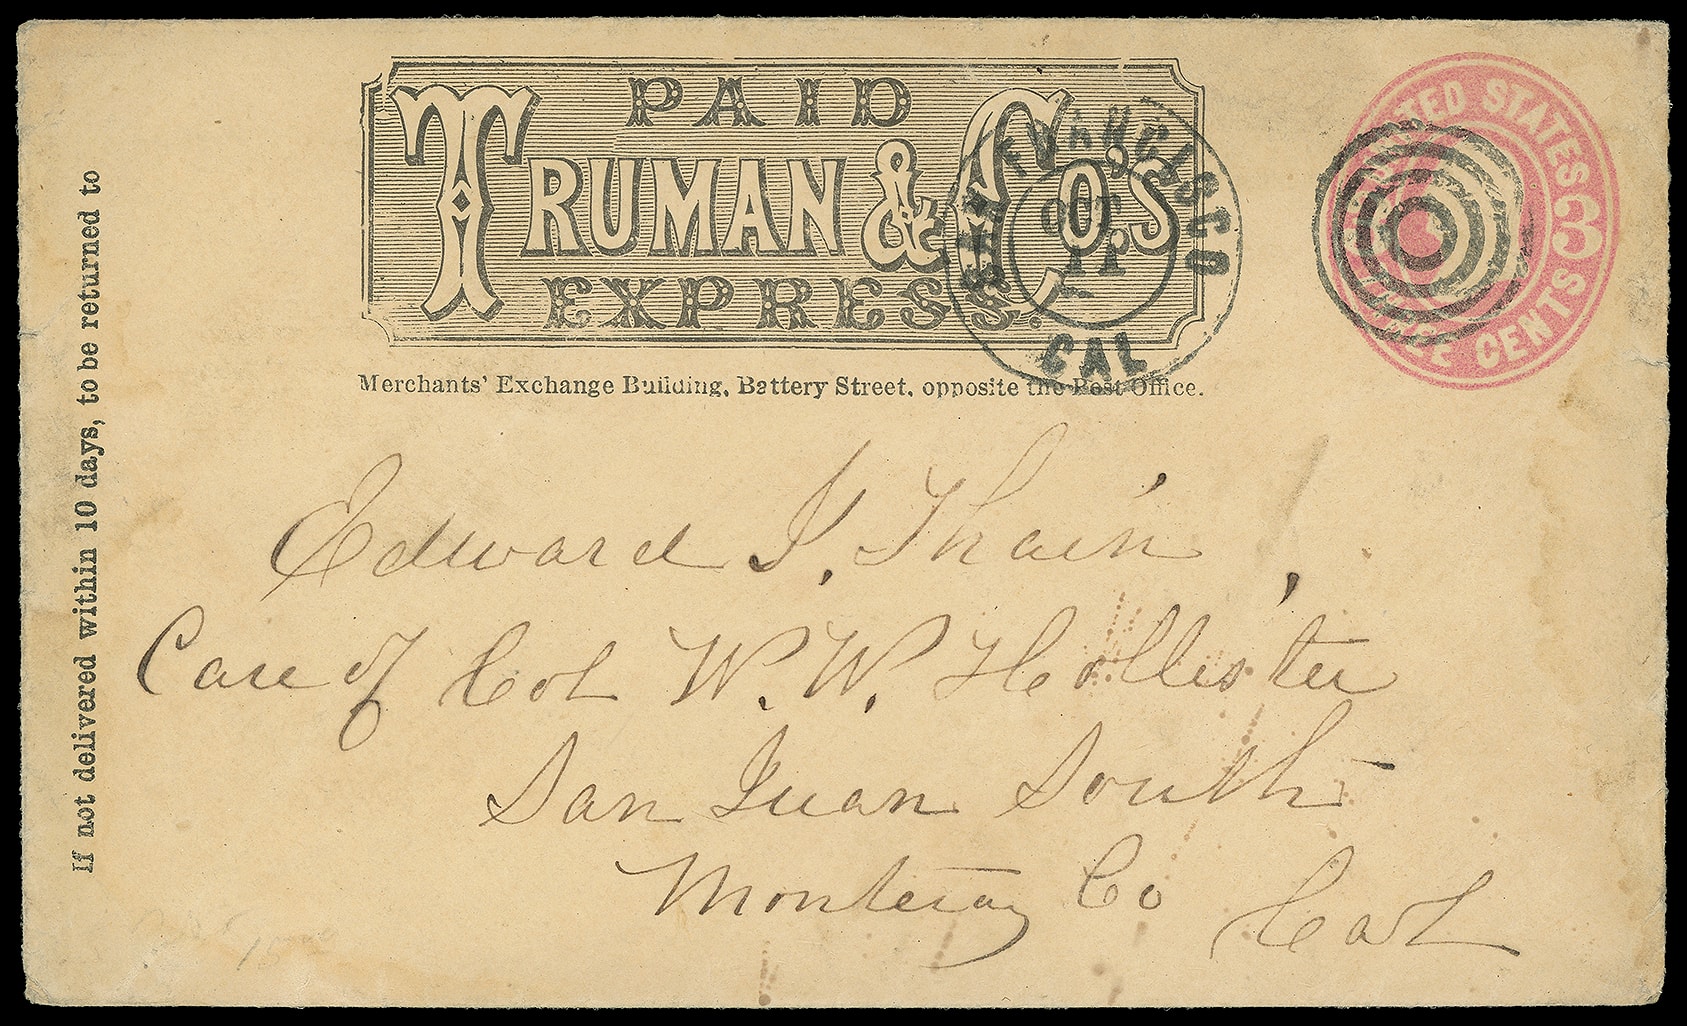 PAID
TRUMAN & Co's
EXPRESS.
Merchants' Exchange Building, Battery Street, opposite the Post Office.
SAN FRANCISCO
OCT
11
CAL
UNITED STATES
3
THREE CENTS
If not delivered within 10 days, to be returned to
Edward J. Thain,
Care of Col W. W. Hollister
San Juan South
Monteray Co Cal